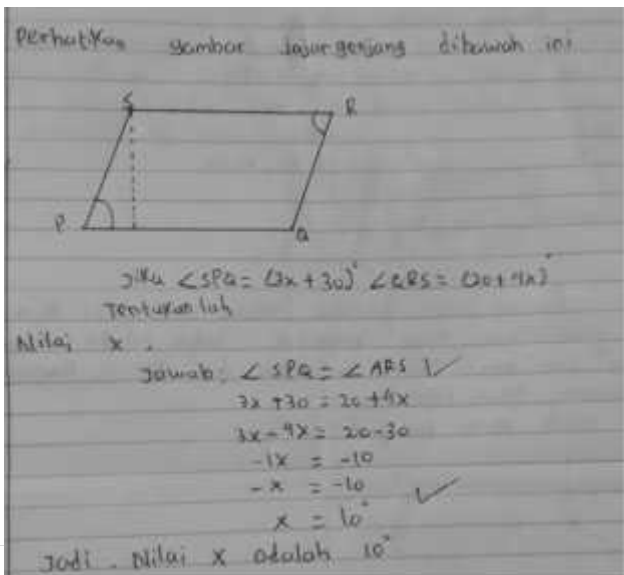 Perhatikan gambar jajar genjang dibawah ini
S
R
P
Q
Jika ∠SPQ = (3x + 30)° ∠QRS = (20 + 4x)°
Tentukan lah
Nilai x .
Jawab : ∠ SPQ = ∠ QRS
3x + 30 = 20 + 4x
3x - 4x = 20 - 30
-1x = -10
-x = -10
x = 10°
Jadi . Nilai x adalah 10°